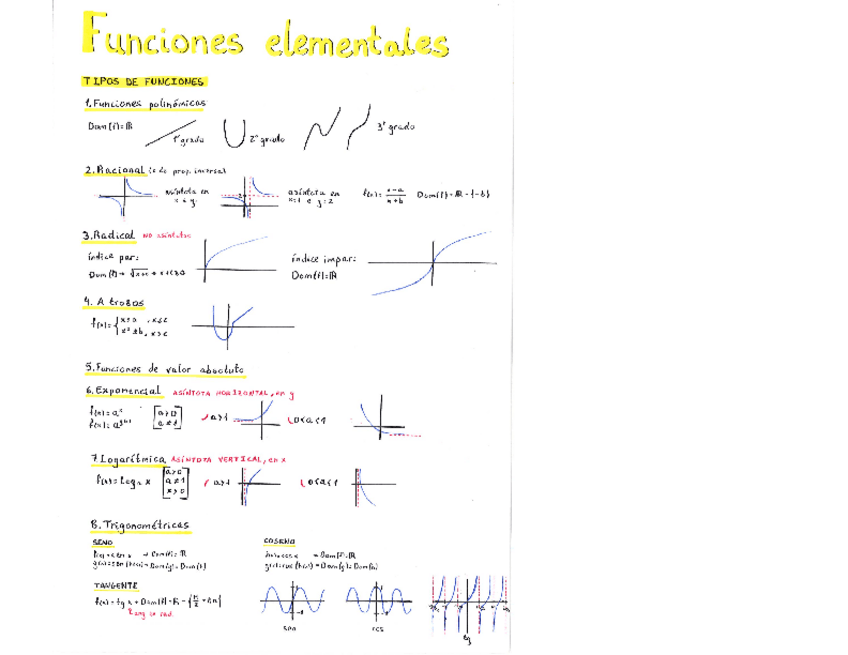 Funciones elementales
TIPOS DE FUNCIONES
1. Funciones polinómicas
Dom(f)=ℝ
1º grado
2º grado
3º grado
2. Racional (o de prop. inversa)
asíntota en
x e y.
asíntota en
x=1 e y=2
f(x)= x-a / x+b Dom(f)=ℝ-{-b}
3. Radical NO asíntotas
índice par:
Dom(f)
índice impar:
Dom(f)=ℝ
4. A trozos
f(x)=
5. Funciones de valor absoluto
6. Exponencial ASÍNTOTA HORIZONTAL, en y
f(x)=aˣ
a>0
a≠1
a>1
0<a<1
7. Logarítmica ASÍNTOTA VERTICAL, en x
f(x)=logₐ x
a>0
a≠1
x>0
a>1
0<a<1
8. Trigonométricas
SENO
f(x)=sen x → Dom(f)=ℝ
g(x)=sen(h(x)) → Dom(g)=Dom(h)
COSENO
Dom(f)=ℝ
TANGENTE
f(x)=tg x → Dom(f)=ℝ-
sen
cos
tg